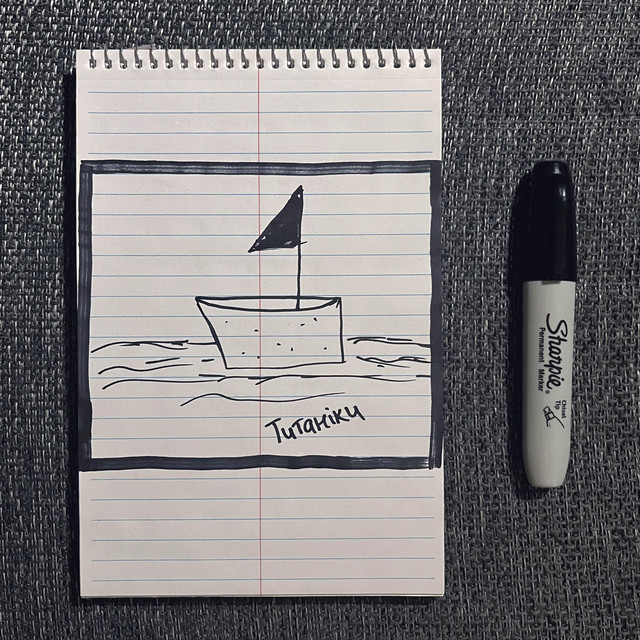 Титаніки
Sharpie®
Permanent Marker
Chisel
Tip